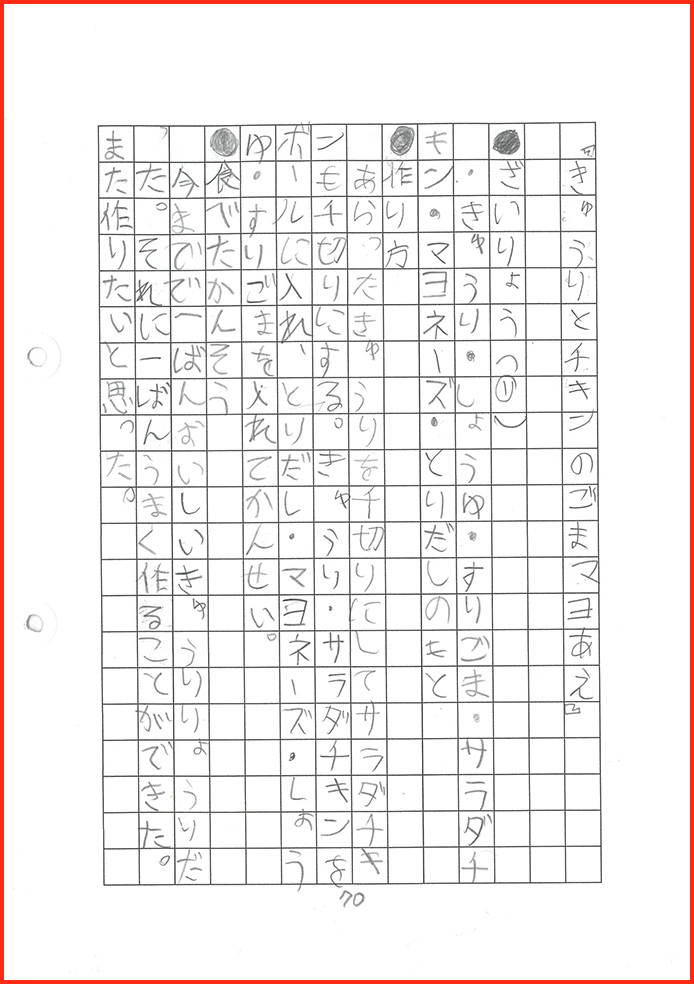 「きゅうりとチキンのごまマヨあえ」
●ざいりょう（リ）
・きゅうり・しょうゆ・すりごま・サラダチ
キン・マヨネーズ・とりだしのもと
●作り方
あらったきゅうりを千切りにしてサラダチキ
ンもチ切りにする。きゅうり・サラダチキンを
ボールに入れ、とりだし・マヨネーズ・しょう
ゆ・すりごまを入れてかんせい。
●食でたかんそう
今までで一ばんおいしいきゅうりりょうりだ
った。それに一ばんうまく作ることができた。
また作りたいと思った。
70